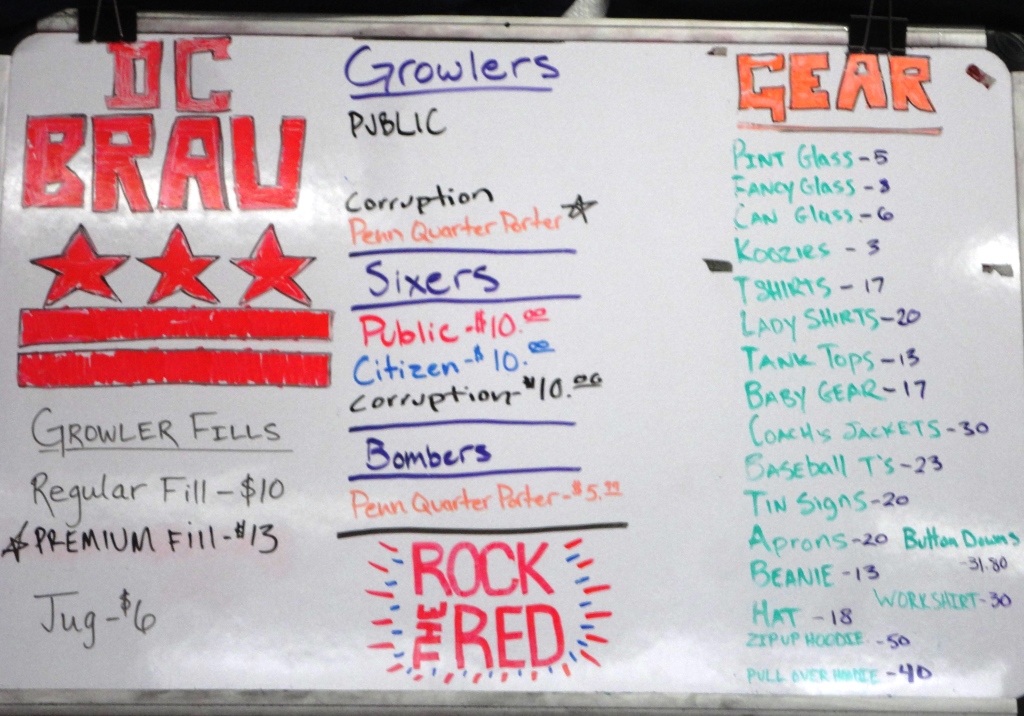 DC
BRAU
GROWLER FILLS
Regular Fill - $10
☆ PREMIUM Fill - $13
Jug - $6
Growlers
PUBLIC
Corruption
Penn Quarter Porter ☆
Sixers
Public - $10.00
Citizen - $10.00
Corruption - $10.00
Bombers
Penn Quarter Porter - $5.99
ROCK
THE RED
GEAR
PINT Glass - 5
FANCY Glass - 8
CAN Glass - 6
KOOZIES - 3
T SHIRTS - 17
LADY SHIRTS - 20
TANK TOPS - 13
BABY GEAR - 17
COACH'S JACKETS - 30
BASEBALL T'S - 23
TIN SIGNS - 20
Aprons - 20
Button Downs
- 31.80
BEANIE - 13
WORKSHIRT - 30
HAT - 18
ZIP UP HOODIE - 50
PULL OVER HOODIE - 40